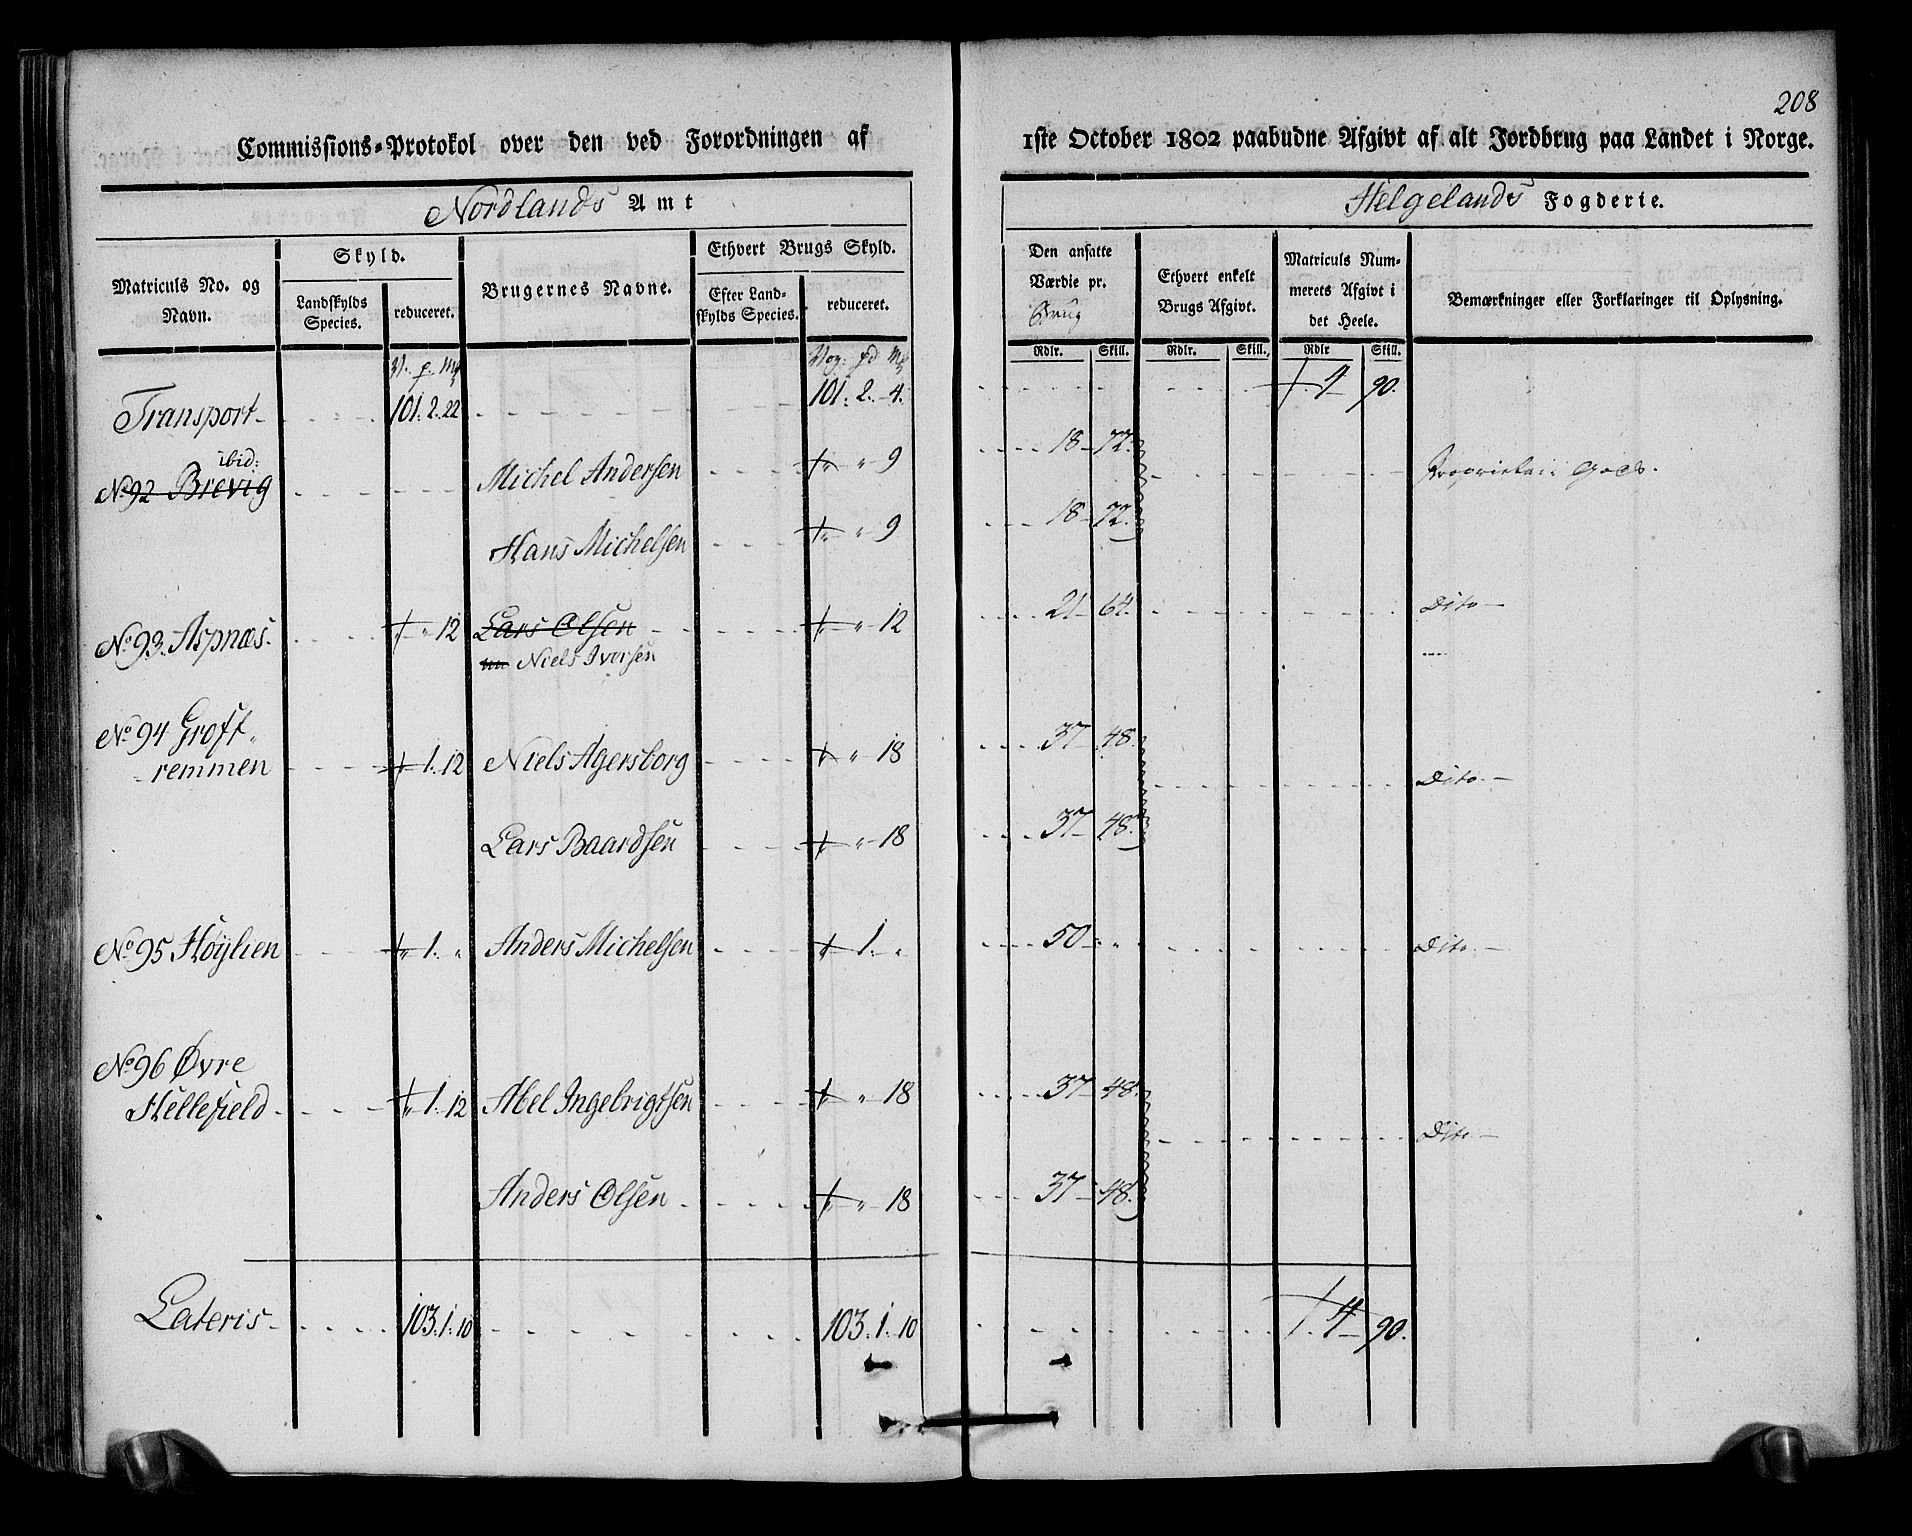 208
Commissions-Protokol over den ved Forordningen af 1ste October 1802 paabudne Afgivt af alt Jordbrug paa Landet i Norge.
Nordlands Amt
Helgelands Fogderie.
Matriculs No. og Navn.
Skyld.
Landskylds Species.
reduceret.
Brugernes Navne.
Ethvert Brugs Skyld.
Efter Landskylds Species.
reduceret.
Den ansatte Værdie pr. Brug
Ethvert enkelt Brugs Afgivt.
Matriculs Nummerets Afgivt i det Heele.
Bemærkninger eller Forklaringer til Oplysning.
Rdlr. Skill. Rdlr. Skill. Rdlr Skill.
V. p. Mk
Vog: pd Mk
Transport 101. 2. 22 101. 2. 4. 4 90.
ibid:
No 92 Brevig Michel Andersen " " 9 18 72. Proprietair Gods.
Hans Michelsen " " 9 18 72.
No 93. Aspnæs. " 12 Lars Olsen " " 12 21 64. Dito
nu Niels Iversen
No 94 Groft-
remmen 1. 12 Niels Agersborg " 18 37 48. Dito.
Lars Baardsen " 18 37 48.
No 95 Höÿlien " 1. " Anders Michelsen " 1. " 50 " " Dito.
No 96 Øvre
Hellefield " 1. 12 Abel Ingebrigtsen " " 18 37 48. Dito
Anders Olsen " " 18 37 48.
Lateris 103. 1. 10 103. 1. 10 4 90.